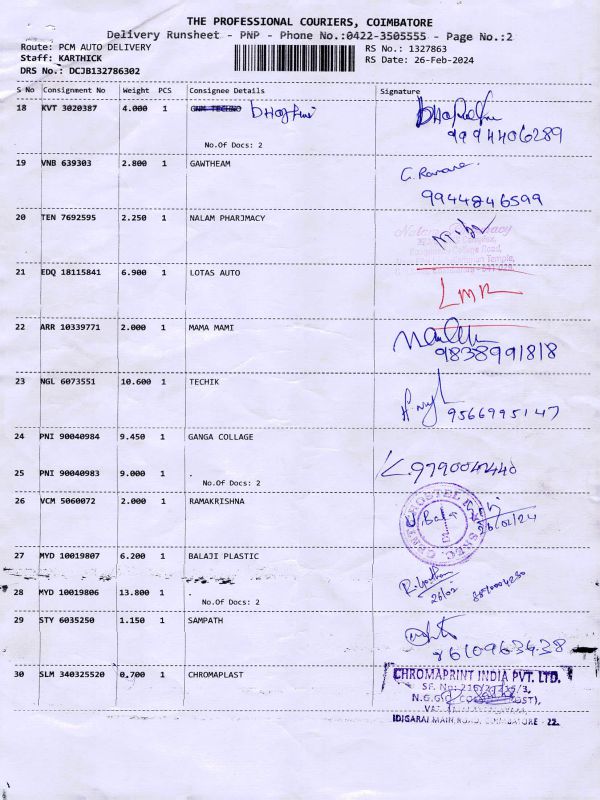 THE PROFESSIONAL COURIERS, COIMBATORE
Delivery Runsheet - PNP - Phone No.:0422-3505555 - Page No.:2
Route: PCM AUTO DELIVERY RS No.: 1327863
Staff: KARTHICK RS Date: 26-Feb-2024
DRS No.: DCJB132786302
S No Consignment No Weight PCS Consignee Details Signature
18 KVT 3020387 4.000 1 GNM TECHNO
No.Of Docs: 2 9994406289
19 VNB 639303 2.800 1 GAWTHEAM
9944846599
20 TEN 7692595 2.250 1 NALAM PHARJMACY
21 EDQ 18115841 6.900 1 LOTAS AUTO
LMR
22 ARR 10339771 2.000 1 MAMA MAMI
9838991818
23 NGL 6073551 10.600 1 TECHIK
9566995147
24 PNI 90040984 9.450 1 GANGA COLLAGE
25 PNI 90040983 9.000 1 . 9790042440
No.Of Docs: 2
26 VCM 5060072 2.000 1 RAMAKRISHNA
Bala 26/02/24
27 MYD 10019807 6.200 1 BALAJI PLASTIC
26/02
28 MYD 10019806 13.800 1 .
No.Of Docs: 2
29 STY 6035250 1.150 1 SAMPATH
8610963438
30 SLM 340325520 0.700 1 CHROMAPLAST
CHROMAPRINT INDIA PVT. LTD.
IDIGARAI MAIN ROAD, COIMBATORE - 22.